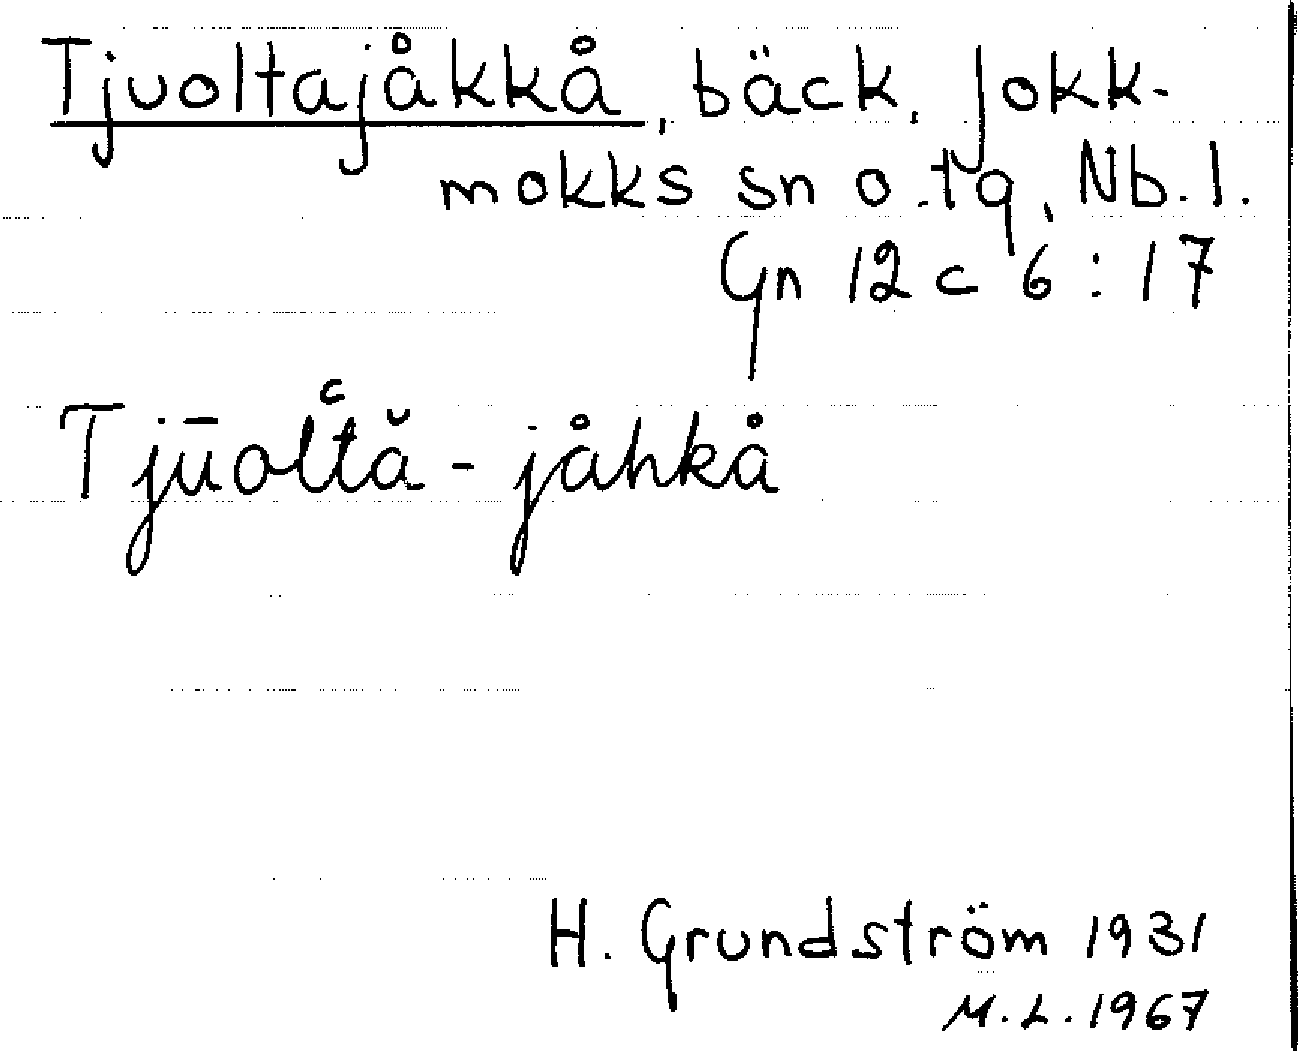 Tjuoltajåkkå, bäck, Jokk-
mokks sn o. tg, Nb. l.
Gn 12 c 6 : 17
Tjūolt͑ă - jåhkå
H. Grundström 1931
M. L. 1967